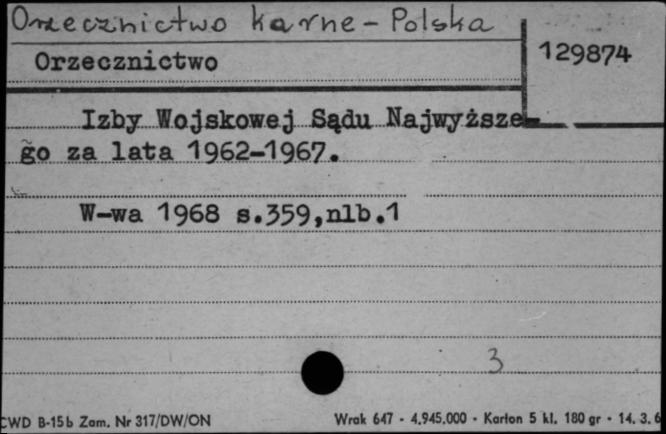 Orzecznictwo karne - Polska
129874
Orzecznictwo
Izby Wojskowej Sądu Najwyższe-
go za lata 1962-1967.
W-wa 1968 s.359,nlb.1
3
CWD B-15b Zam. Nr 317/DW/ON
Wrak 647 - 4.945.000 - Karton 5 kl. 180 gr - 14. 3. 6